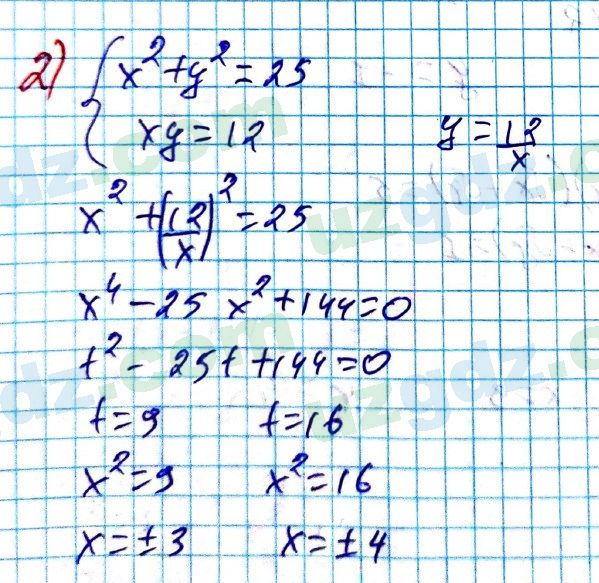 2) { x² + y² = 25
xy = 12    y = 12/x
x² + (12/x)² = 25
x⁴ - 25 x² + 144 = 0
t² - 25t + 144 = 0
t = 9    t = 16
x² = 9    x² = 16
x = ±3    x = ±4
uzgdz.com